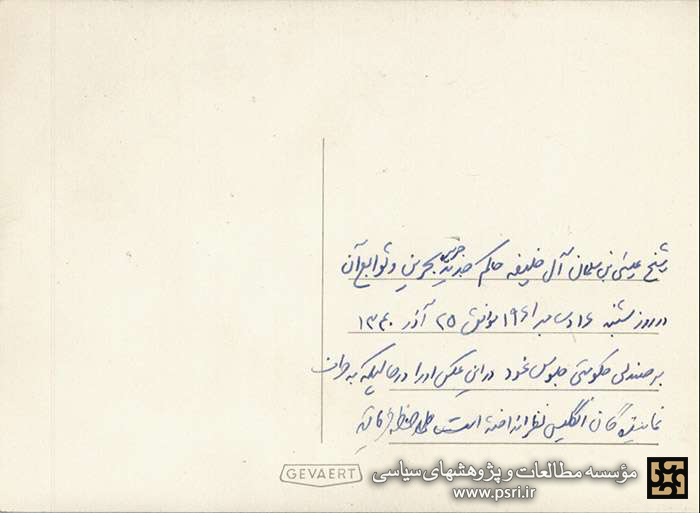 شیخ عیسی بن سلمان آل خلیفه حاکم جدید بحرین و توابع آن
در روز شنبه ۱۶ دسامبر ۱۹۶۱ موافق ۲۵ آذر ۱۳۴۰
بر صندلی حکومتی جلوس نمود در این عکس او را در حالیکه به طرف
نمایندگان انگلیس نظر انداخته است ملاحظه می‌فرمائید
GEVAERT
مؤسسه مطالعات و پژوهشهای سیاسی
www.psri.ir